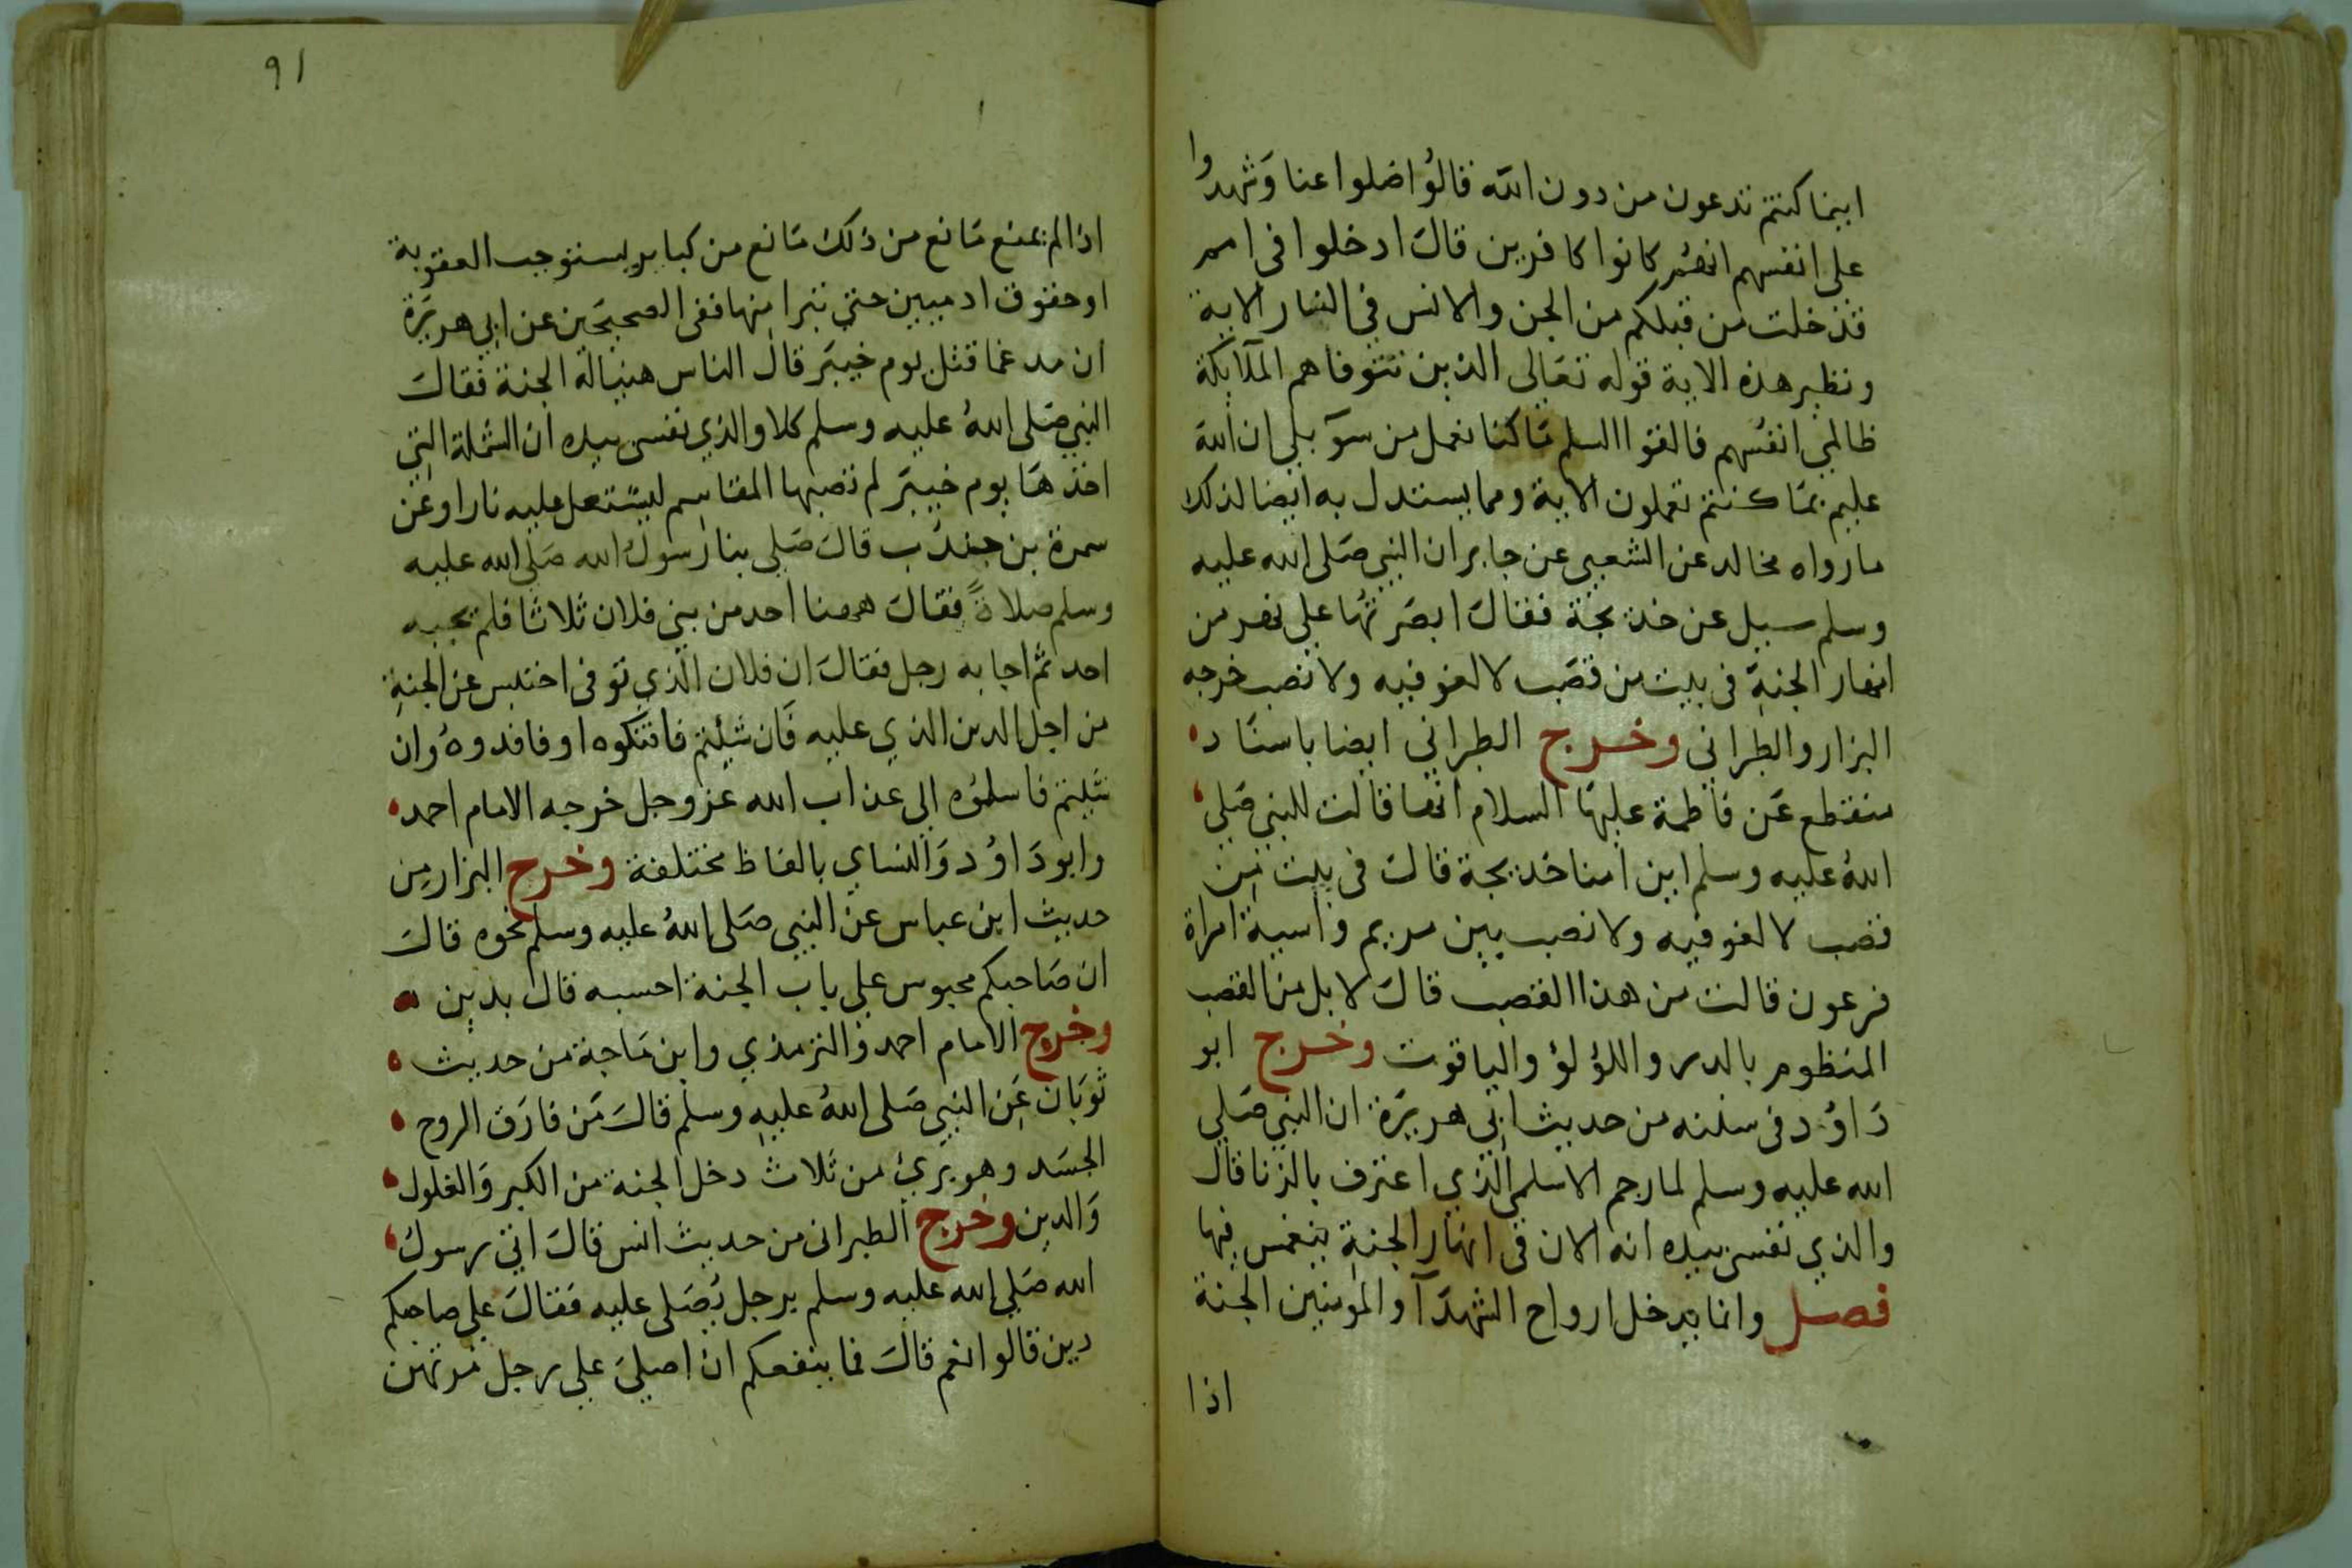 اينما كنتم تدعون من دون الله قالوا ضلوا عنا وشهدوا
على انفسهم انهم كانوا كافرين قال ادخلوا في امم
قد خلت من قبلكم من الجن والانس في النار الاية
ونظير هذه الاية قوله تعالى الذين تتوفاهم الملآيكة
ظالمي انفسهم فالقوا السلم ما كنا نعمل من سوء بلي ان الله
عليم بما كنتم تعملون الاية ومما يستدل به ايضا لذلك
ما رواه مخالد عن الشعبي عن جابر ان النبي صلى الله عليه
وسلم سيل عن خديجة فقال ابصرتها على نهر من
انهار الجنة في بيت من قصب لا لغو فيه ولا نصب خرجه
البزار والطبراني وخرج الطبراني ايضا باسناد
منقطع عن فاطمة عليها السلام انها قالت للنبي صلي
الله عليه وسلم اين امنا خديجة قال في بيت من
قصب لا لغو فيه ولا نصب بين مريم واسية امراة
فرعون قالت من هذا القصب قال لا بل من القصب
المنظوم بالدر واللؤلؤ والياقوت وخرج ابو
داؤد في سننه من حديث ابي هريرة ان النبي صلي
الله عليه وسلم لما رجم الاسلمي الذي اعترف بالزنا قال
والذي نفسي بيده انه الان في انهار الجنة ينغمس فيها
فصل وانما يدخل ارواح الشهدآ والمومنين الجنة
اذا
91
اذا لم يمنع مانع من ذلك مانع من كباير يستوجب العقوبة
او حقوق ادميين حتي تبرا منها ففي الصحيحين عن ابي هريرة
ان مدعما قتل يوم خيبر قال الناس هنيا له الجنة فقال
النبي صلى الله عليه وسلم كلا والذي نفسي بيده ان الشملة التي
اخذها يوم خيبر لم تصبها المقاسم ليشتعل عليه نارا وعن
سمرة بن جندب قال صلي بنا رسول الله صلي الله عليه
وسلم صلاةً فقال ههنا احد من بني فلان ثلاثا فلم يجبه
احد ثم اجابه رجل فقال ان فلان الذي توفى احتبس عن الجنة
من اجل الدين الذي عليه فان شئتم فافتكوه او فافدوه وان
شئيتم فاسلموه الي عذاب الله عز وجل خرجه الامام احمد
وابو داؤد والنساي بالفاظ مختلفة وخرج البزار من
حديث ابن عباس عن النبي صلى الله عليه وسلم نحوه قال
ان صاحبكم محبوس علي باب الجنة احسبه قال بدين
وخرج الامام احمد والترمذي وابن ماجة من حديث
ثوبان عن النبي صلى الله عليه وسلم قال من فارق الروح
الجسد وهو بريئ من ثلاث دخل الجنة من الكبر والغلول
والدين وخرج الطبراني من حديث انس قال اتي رسول
الله صلي الله عليه وسلم برجل يصلى عليه فقال علي صاحبكم
دين قالوا نعم قال فما ينفعكم ان اصلي علي رجل مرتهن